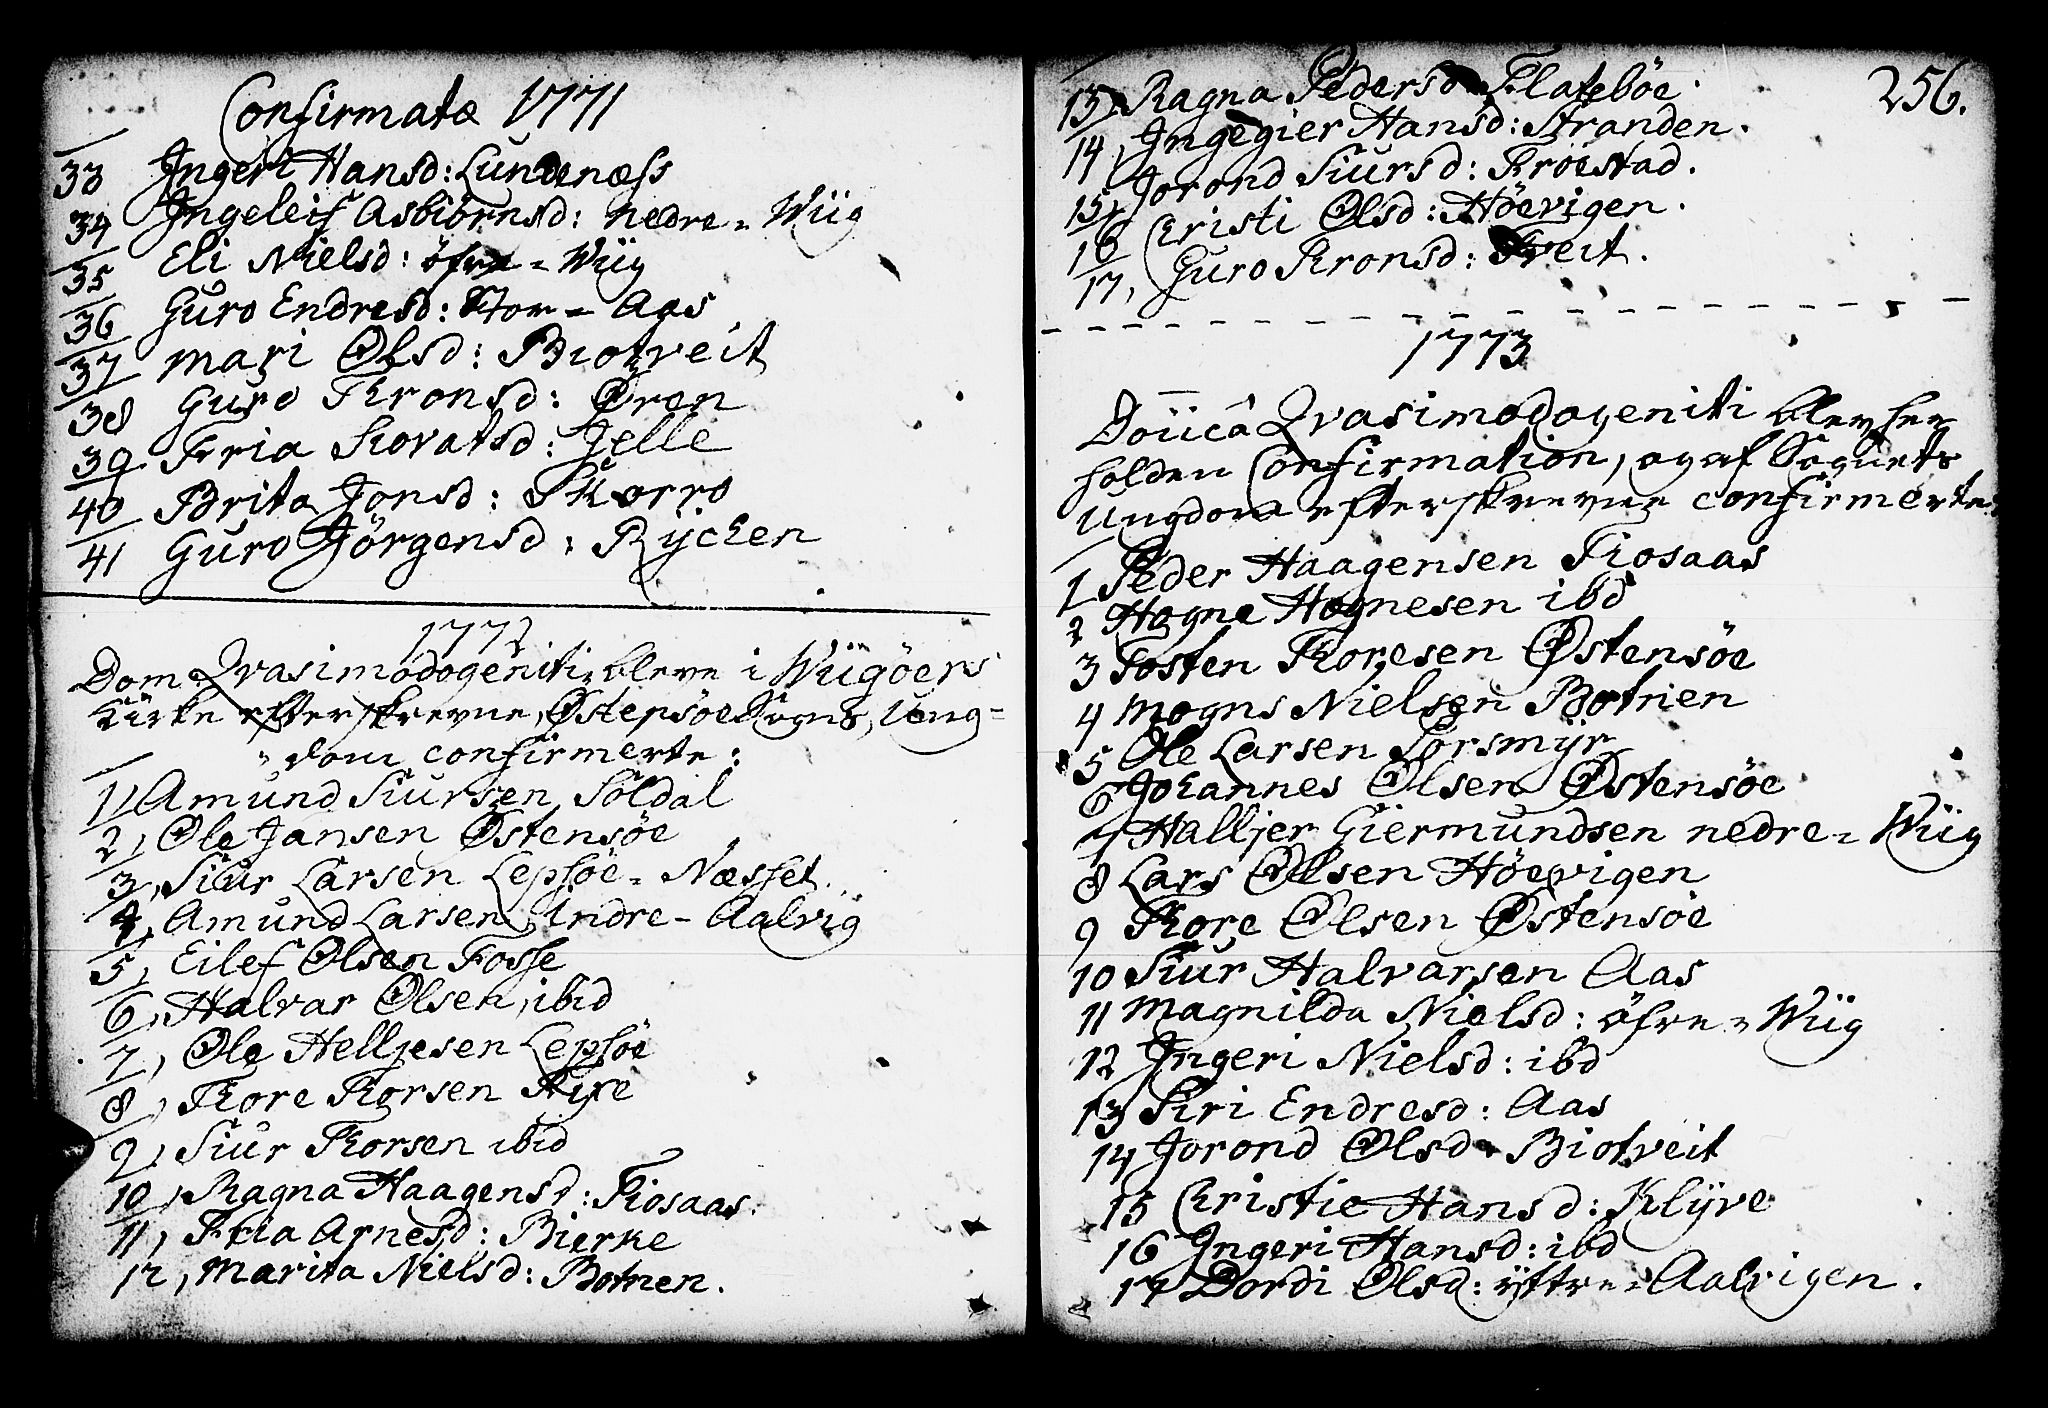 Confirmatæ 1771
33 Ingeri Hansd: Lundenæss
34 Ingeleif Asbiörnsd: nedre = Wiig
35 Eli Nielsd: öfre = Wiig
36 Guro Endresd: Stor = Aas
37 Mari Olsd: Biotveit
38 Guro Thronsd: Øren
39 Fria Thorvatsd: Jelle
40 Brita Jonsd: Skorro
41 Guro Jörgensd: Rychen
1772
Dom Qvasimodogeniti bleve i Wiigöers
Kirke efterskrevne Østensöe Sogns Ung=
dom confirmerte:
1, Amund Siursen Soldal
2, Ole Jansen Østensöe
3, Siur Larsen Lepsöe = Næsset
4, Amund Larsen Indre = Aalvig
5, Eilef Olsen Fosse
6, Halvar Olsen, ibid
7, Ole Helljesen Lepsöe
8, Thore Thorsen
9, Siur Thorsen ibid
10, Ragna Haagensd: Kiosaas.
11, Fria Arnesd: Bierke
12, Marita Nielsd: Botnen.
256.
13, Ragna Pedersd Flateböe.
14, Ingegier Hansd: Stranden.
15, Jorond Siursd: Froestad.
16 Christi Olsd: Höevigen.
17, Guro Thronsd: Tveit.
1773
Doīicâ Qvasimodogeniti blev her
holden Confirmation, og af Sognets
Ungdom efterskrevne confirmerte:
1 Peder Haagensen Kiosaas
2 Hogne Hognesen ibd
3 Tosten Thoresen Østensöe
4 Mogns Nielsen Botnen
5 Ole Larsen Torsmyr
6 Johannes Olsen Østensöe
7 Halljer Giermundsen nedre = Wiig
8 Lars Olsen Höevigen
9 Thore Olsen Østensöe
10 Siur Halvarsen Aas
11 Magnilda Nielsd: öfre = Wiig
12 Ingeri Nielsd: ibd
13 Siri Endresd: Aas
14 Jorond Olsd Biotveit
15 Christie Hansd: Klyve
16 Ingeri Hansd: ibd
17 Dordi Olsd: yttre = Aalvigen.